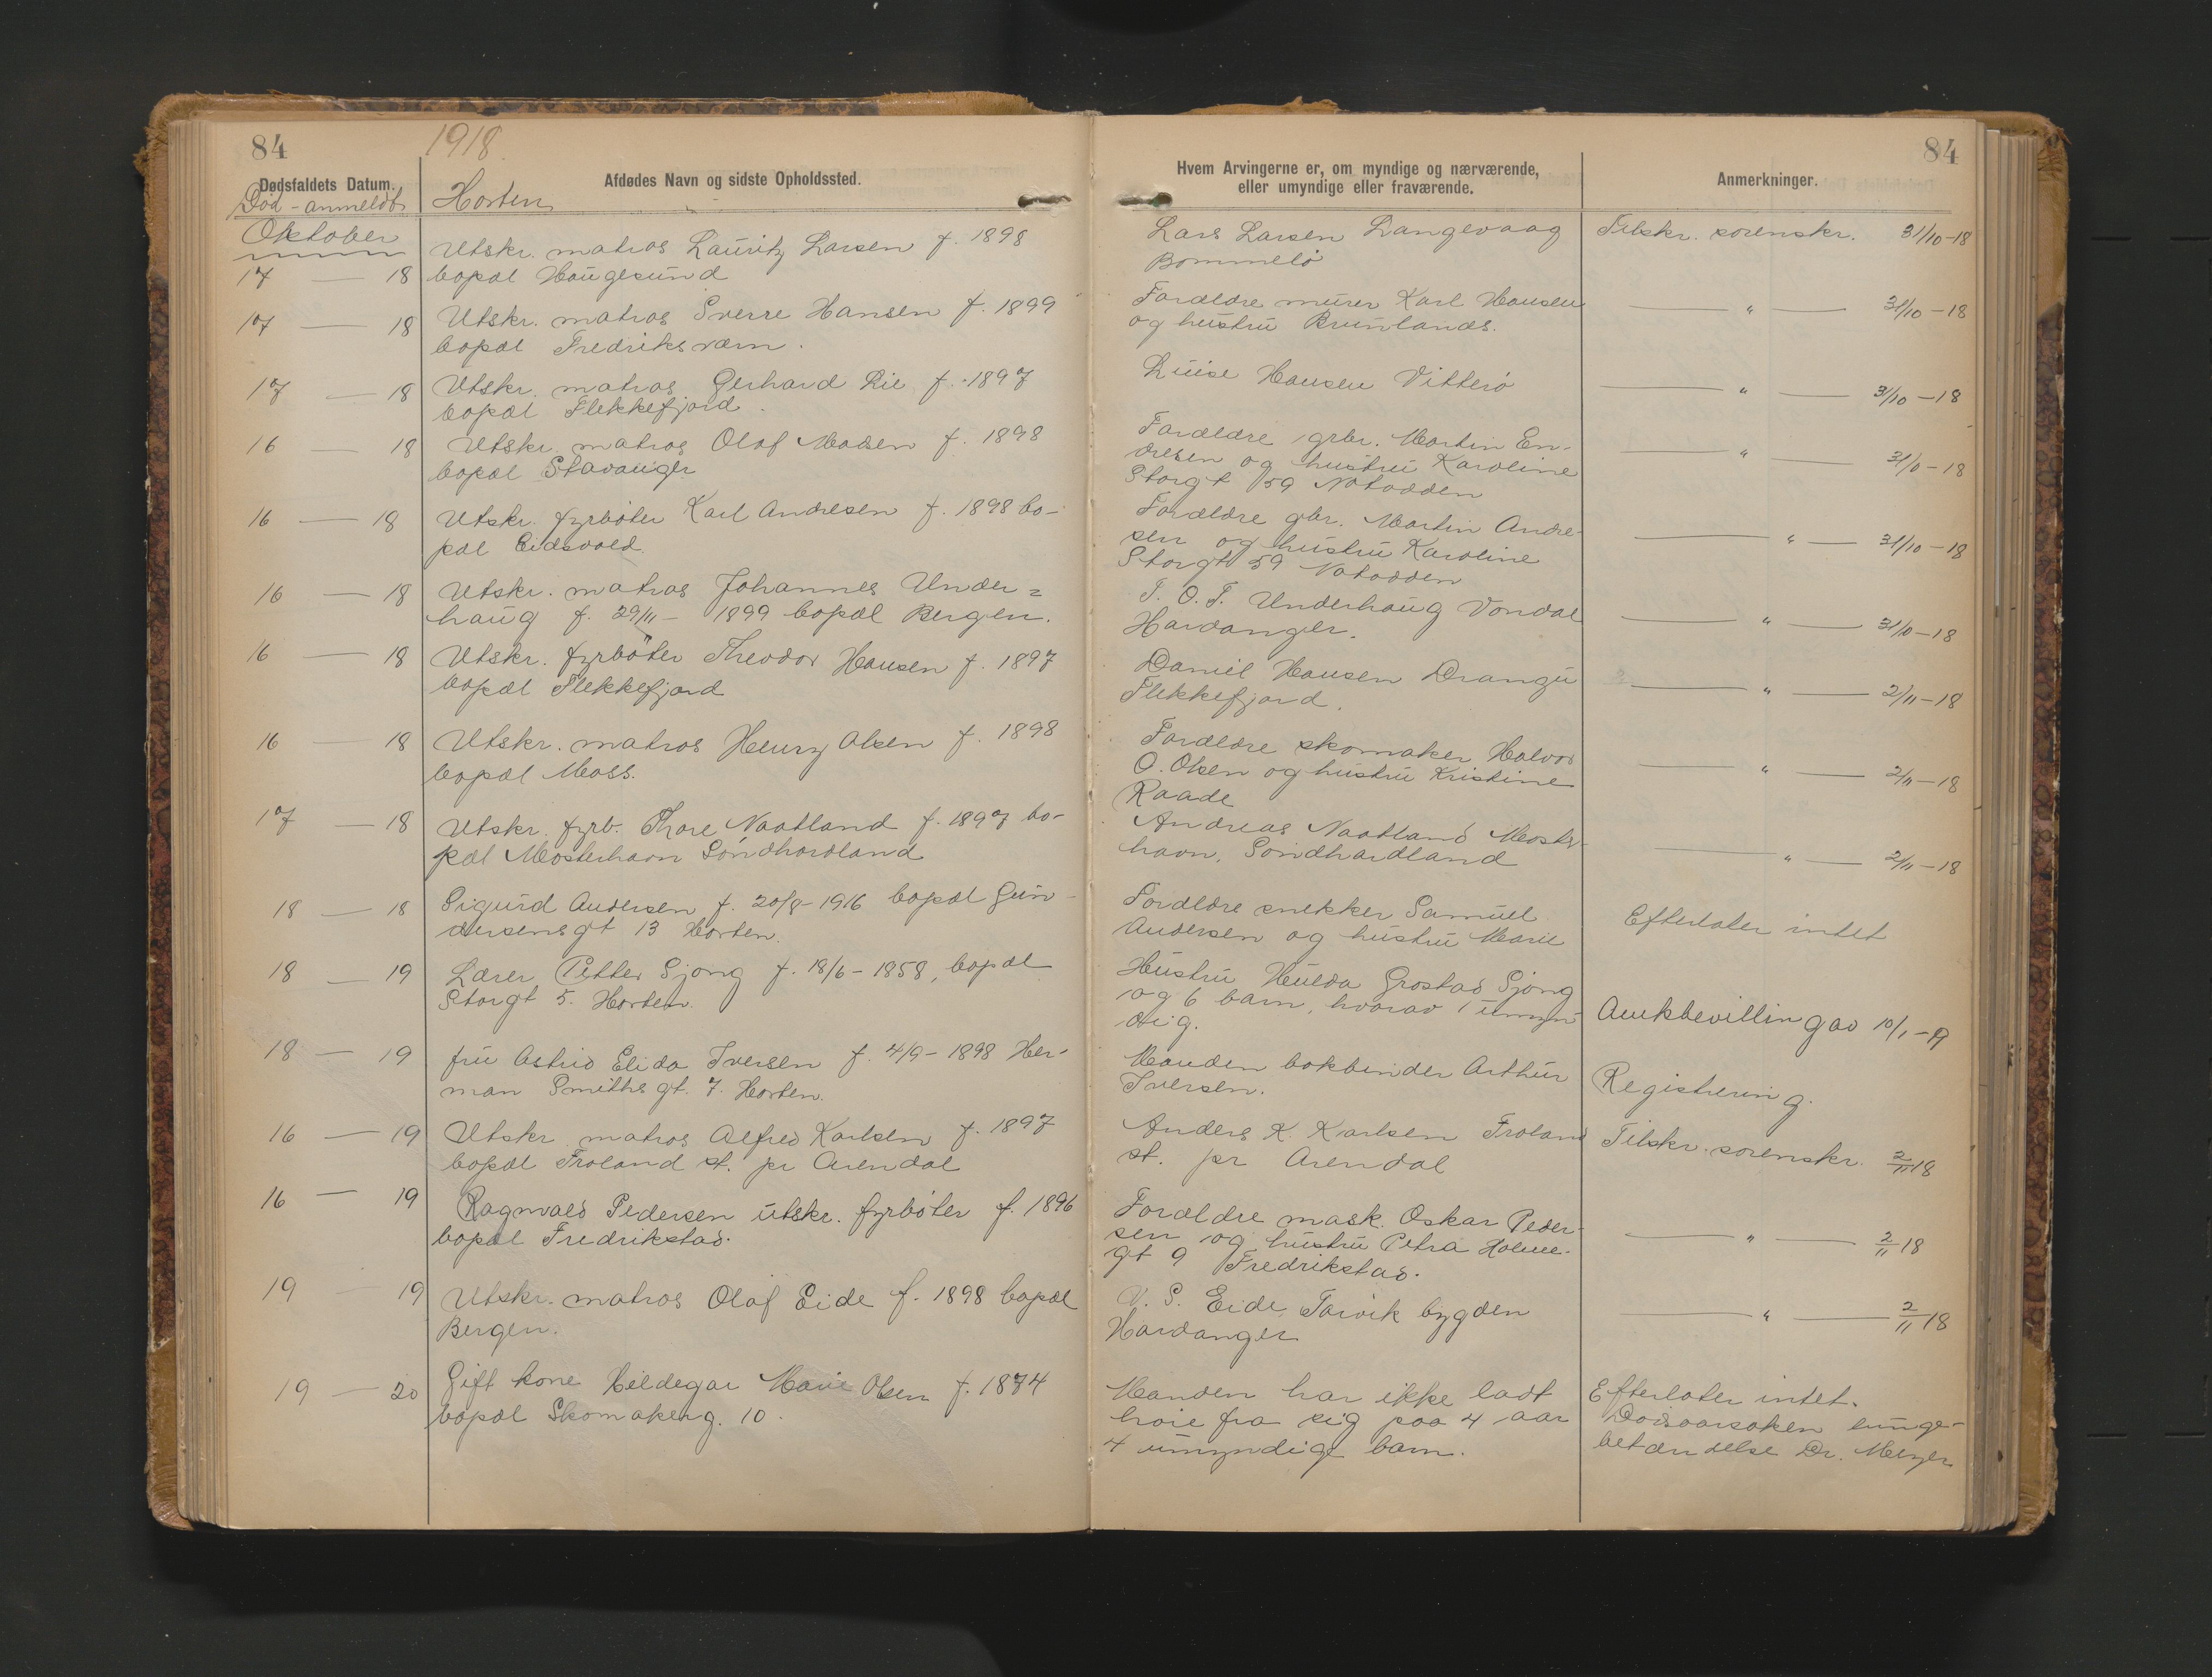 84
1918.
Dødsfaldets Datum.
Afdødes Navn og sidste Opholdssted.
Død - anmeldt
Horten
Oktober
Utskr. matros Lauritz Larsen f. 1898
17 — 18 bopæl Haugesund
17 — 18 Utskr. matros Sverre Hansen f. 1899
bopæl Fredriksværn.
17 — 18 Utskr. matros Gerhard Lie f. 1897
bopæl Flekkefjord.
16 — 18 Utskr. matros Olaf Madsen f. 1898
bopæl Stavanger
16 — 18 Utskr. fyrbøter Karl Andresen f. 1898 bo-
pæl Eidsvold.
16 — 18 Utskr. matros Johannes Under=
haug f. 29/11 - 1899 bopæl Bergen.
16 — 18 Utskr. fyrbøter Theodor Hansen f. 1897
bopæl Flekkefjord
16 — 18 Utskr. matros Henry Olsen f. 1898
bopæl Moss.
17 — 18 Utskr. fyrb. Thore Naatland f. 1897 bo-
pæl Mosterhavn Søndhordland
18 — 18 Sigurd Andersen f. 20/8 - 1916 bopæl Gun-
dersensgt 13 Horten.
18 — 19 Lærer Petter Sjong f. 18/6 - 1858, bopæl
Storgt 5. Horten.
18 — 19 fru Astrid Elida Iversen f. 4/9 - 1898 Her-
man Smiths gt. 7. Horten.
16 — 19 Utskr. matros Alfred Karlsen f. 1897
bopæl Froland st. pr Arendal
16 — 19 Ragnvald Pedersen utskr. fyrbøter f. 1896
bopæl Fredrikstad.
19 — 19 Utskr. matros Olaf Eide f. 1898 bopæl
Bergen.
19 — 20 Gift kone Hildegar Marie Olsen f. 1874
bopæl Skomakerg. 10.
84
Hvem Arvingerne er, om myndige og nærværende,
eller umyndige eller fraværende.
Anmerkninger.
Lars Larsen Langevaag Tilskr. sorenskr. 31/10-18
Bømmelø
Forældre murer Karl Hansen — " — 31/10-18
og hustru Brunlanæs.
Luise Hansen Vitterø — " — 31/10-18
Forældre grbr. Martin En-
dresen og hustru Karoline — " — 31/10-18
Storgt 59 Notodden
Forældre gbr. Martin Andre-
sen og hustru Karoline — " — 31/10-18
Storgt 59 Notodden
T. O. T. Underhaug Vondal
Hardanger. — " — 31/10-18
Daniel Hansen Drange
Flekkefjord. — " — 2/11-18
Forældre skomaker Halvor
O. Olsen og hustru Kristine — " — 2/11-18
Raade
Andreas Naatland Moster-
havn, Søndhordland — " — 2/11-18
Forældre snekker Samuel
Andersen og hustru Marie
Efterlater intet
Hustru Hulda Grøstad Sjong
og 6 barn, hvorav 1 umyn-
dig.
Amtsbevilling av 10/1-19
Manden bokbinder Arthur
Iversen.
Registrering.
Anders K. Karlsen Froland
st. pr Arendal
Tilskr. sorenskr. 2/11 18
Forældre mask. Oskar Peder-
sen og hustru Petra Holme-
gt 9 Fredrikstad. — " — 2/11 18
V. S. Eide, Torvik bygden
Hardanger — " — 2/11 18
Manden har ikke ladt
høre fra sig paa 4 aar
4 umyndige barn.
Efterlater intet.
Dødsaarsaken lunge-
betændelse Dr. Meyer